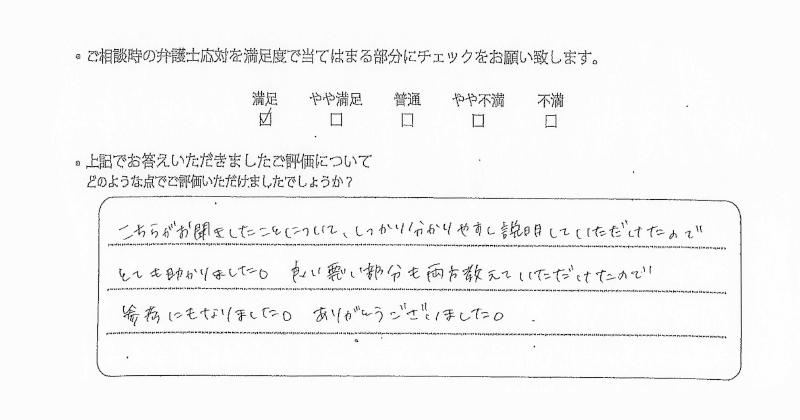 • ご相談時の弁護士応対を満足度で当てはまる部分にチェックをお願い致します。
満足 やや満足 普通 やや不満 不満
☑ □ □ □ □
• 上記でお答えいただきましたご評価について
どのような点でご評価いただけましたでしょうか?
こちらがお聞きしたことについて、しっかり分かりやすし説明していただけたので
とても助かりました。 良い悪い部分も両方教えていただけたので
参考にもなりました。 ありがとうございました。